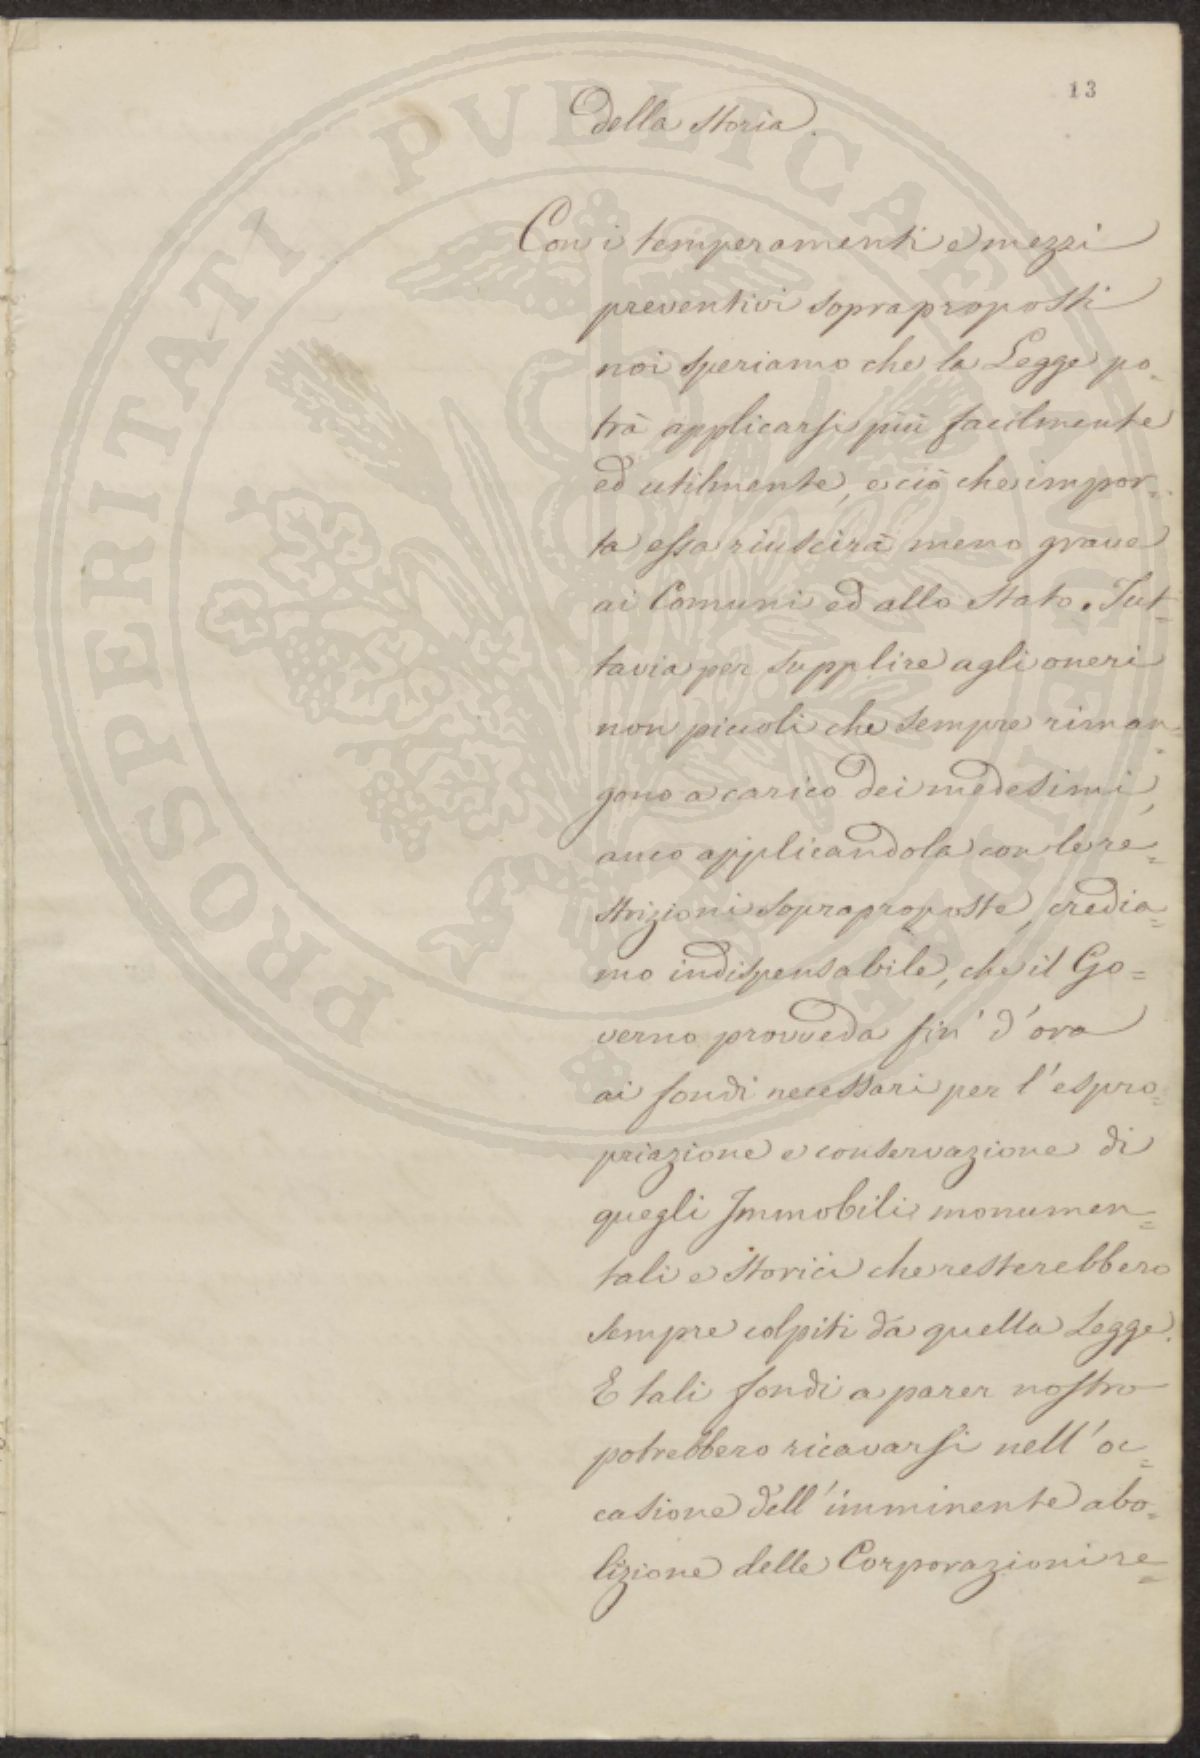 13
della storia.
Con i temperamenti e mezzi
preventivi sopraproposti
noi speriamo che la Legge po-
trà applicarsi più facilmente
ed utilmente, e ciò che impor-
ta essa riuscirà meno grave
ai Comuni ed allo Stato. Tut-
tavia per supplire agli oneri
non piccoli che sempre riman=
gono a carico dei medesimi,
anco applicandola con le re=
strizioni sopraproposte, credia=
mo indispensabile, che il Go=
verno provveda fin' d'ora
ai fondi necessari per l'espro=
priazione e conservazione di
quegli Immobili monumen=
tali e storici che resterebbero
sempre colpiti da quella Legge.
E tali fondi a parer nostro
potrebbero ricavarsi nell'oc=
casione dell'imminente abo=
lizione delle Corporazioni re=
PROSPERITATI PVBLICAE AVGENDAE